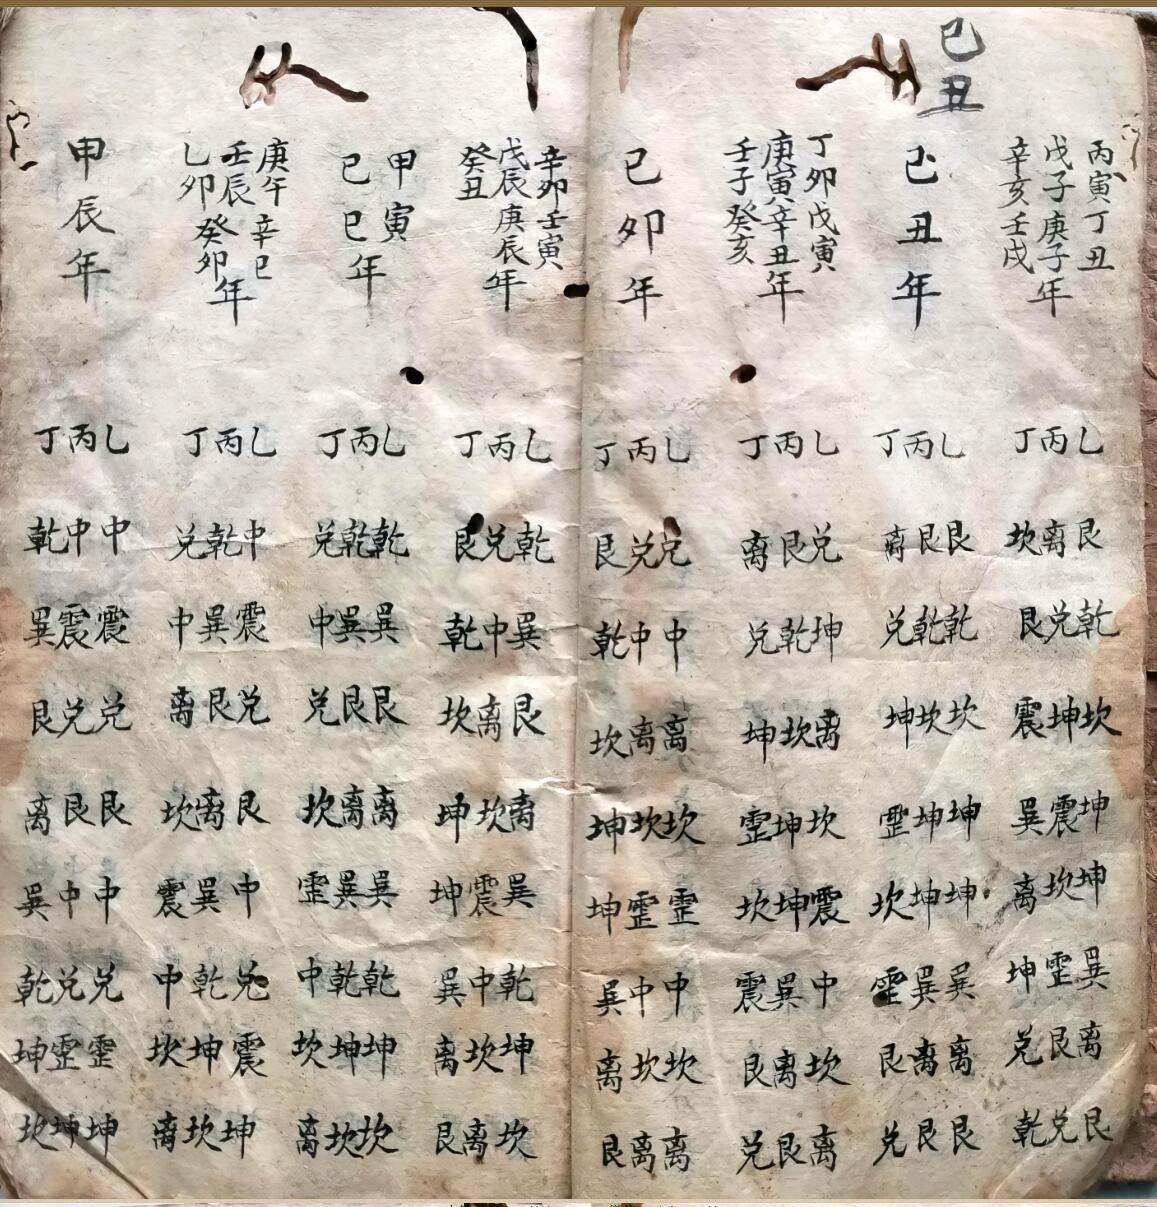 己丑
丙寅丁丑
戊子庚子年
辛亥壬戌
乙艮乾坎坤坤巽离艮
丙离兑坤震坎震艮兑
丁坎艮震巽离坤兑乾
己丑年
乙艮乾坎坤坤巽离艮
丙艮乾坎坤坤巽离艮
丁离兑坤震坎震艮兑
丁卯戊寅
庚寅辛丑年
壬子癸亥
乙兑坤离坎震中坎离
丙艮乾坎坤坤巽离艮
丁离兑坤震坎震艮兑
己卯年
乙兑中离坎震中坎离
丙兑中离坎震中坎离
丁艮乾坎坤坤巽离艮
辛卯壬寅
戊辰庚辰年
癸丑
乙乾巽艮离巽乾坤坎
丙兑中离坎震中坎离
丁艮乾坎坤坤巽离艮
甲寅
己巳年
乙乾巽艮离巽乾坤坎
丙乾巽艮离巽乾坤坎
丁兑中兑坎震中坎离
庚午辛巳
壬辰癸卯年
乙卯
乙中震兑艮中兑震坤
丙乾巽艮离巽乾坤坎
丁兑中离坎震中坎离
甲辰年
乙中震兑艮中兑震坤
丙中震兑艮中兑震坤
丁乾巽艮离巽乾坤坎